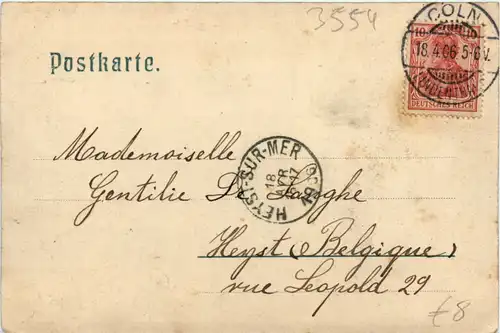 3554
CÖLN
18.4.06 5-6V.
DEUTSCHES REICH
Postkarte.
HEYST-SUR-MER
18
AVR
17
1906
Mademoiselle
Gentilie De Langhe
Heyst (Belgique)
rue Leopold 29
£8